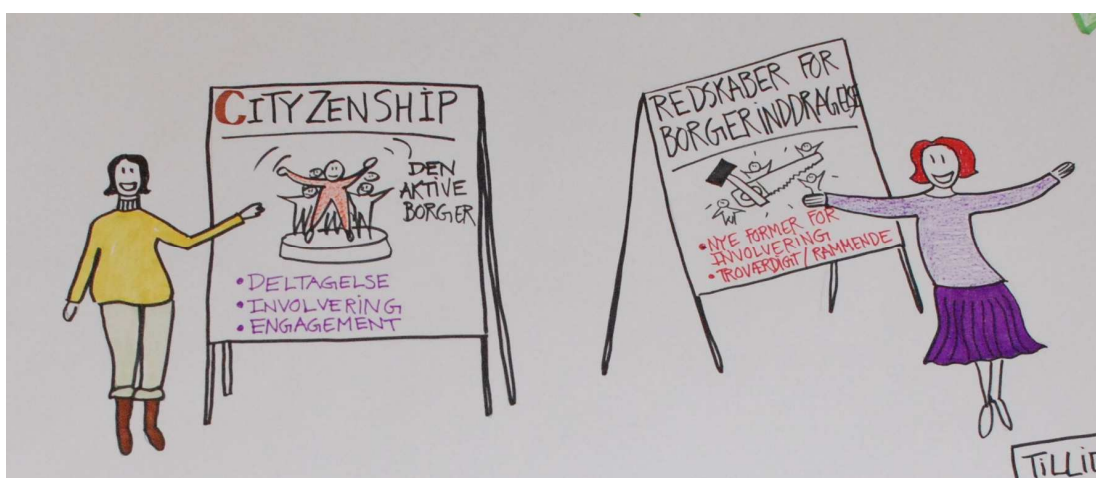 CITYZENSHIP
DEN
AKTIVE
BORGER
• DELTAGELSE
• INVOLVERING
• ENGAGEMENT
REDSKABER FOR
BORGERINDDRAGELSE
• NYE FORMER FOR
INVOLVERING
• TROVÆRDIGT/RAMMENDE